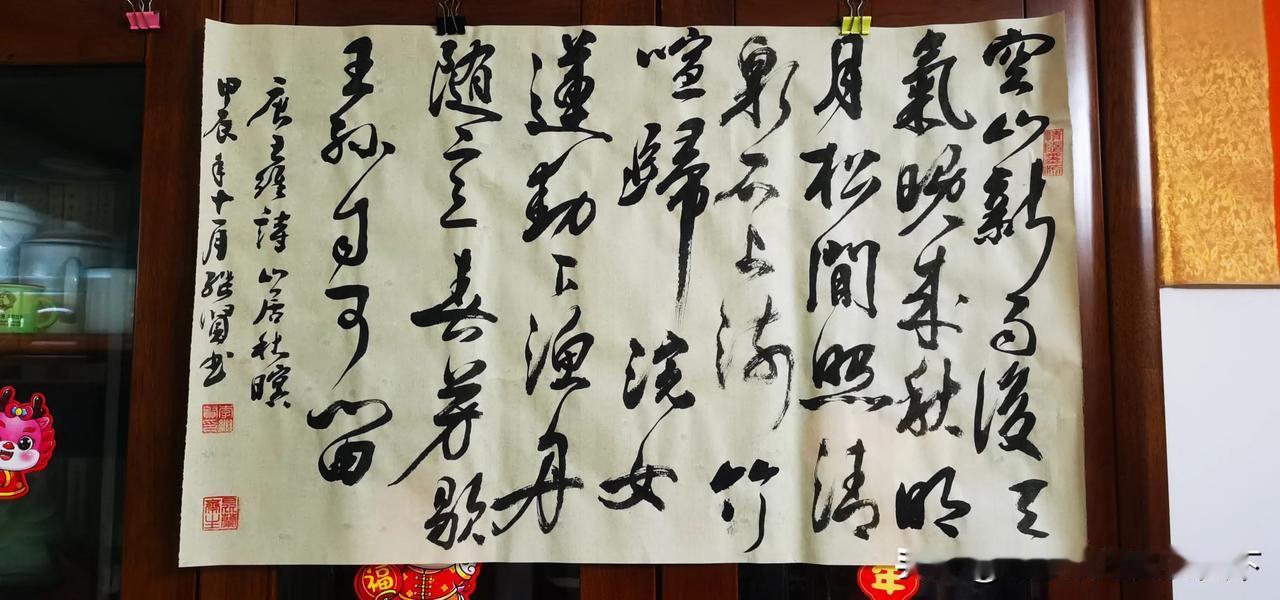 空山新雨後天
氣晚来秋明
月松間照清
泉石上流竹
喧歸浣女
蓮動下漁舟
随意春芳歇
王孫自可留
唐王維詩山居秋暝
甲辰年十一月維賢书
福
年